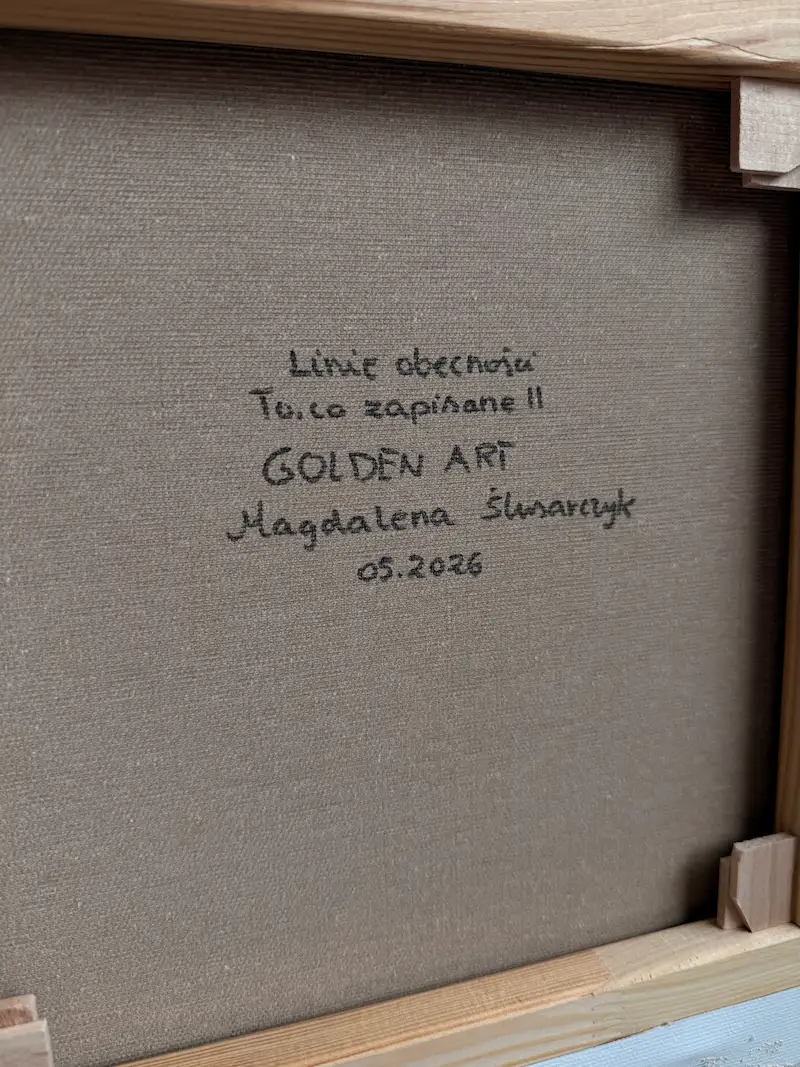 Linie obecności
To, co zapisane II
GOLDEN ART
Magdalena Ślusarczyk
05.2026